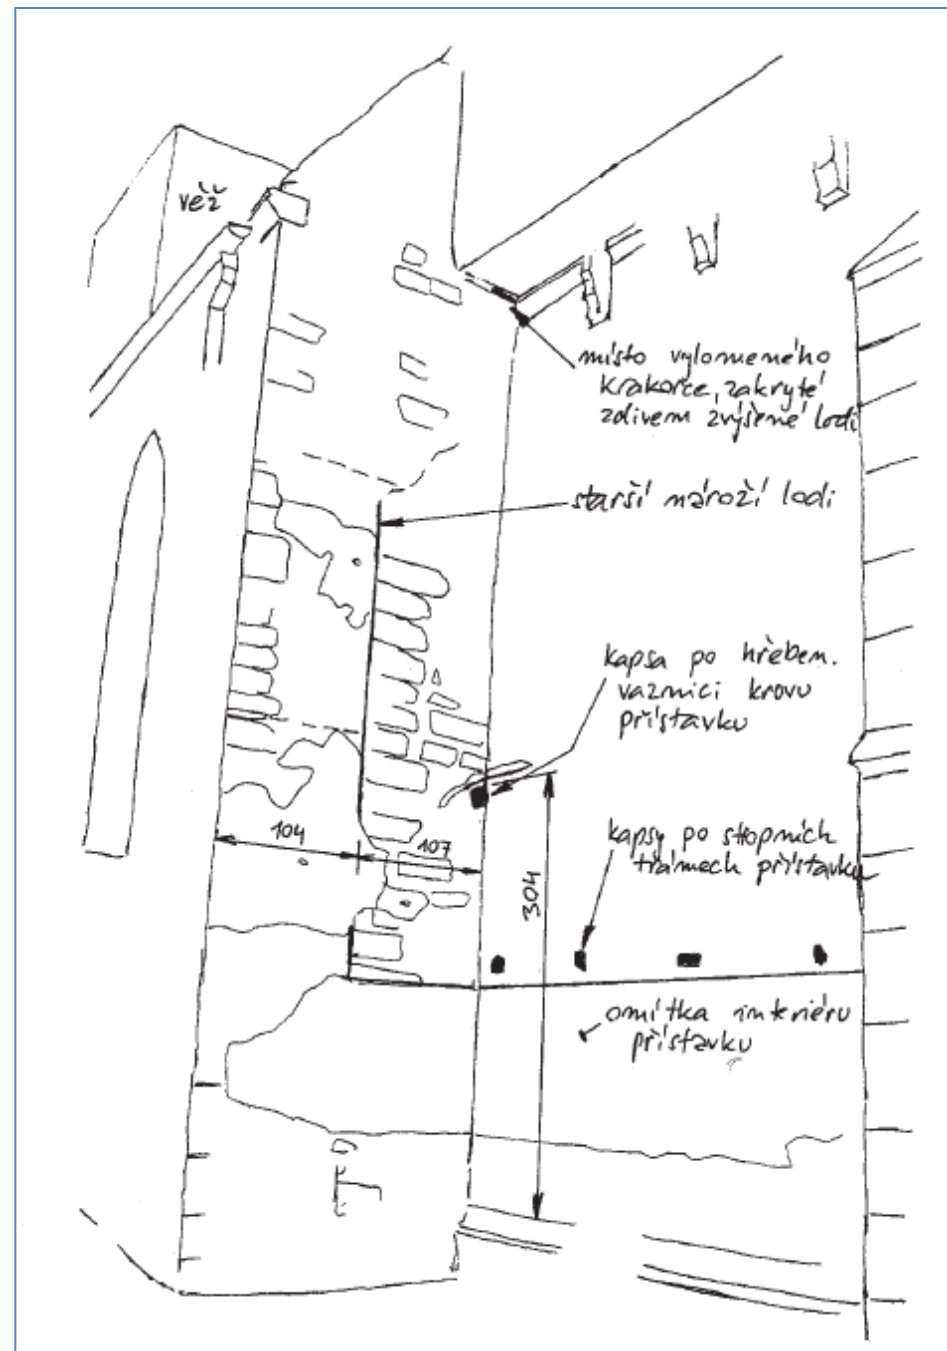 věž
místo vylomeného
krakorce, zakryté
zdivem zvýšené lodi
starší nároží lodi
kapsa po hřeben.
vaznici krovu
přístavku
104
107
304
kapsy po stropních
trámech přístavku
omítka interiéru
přístavku